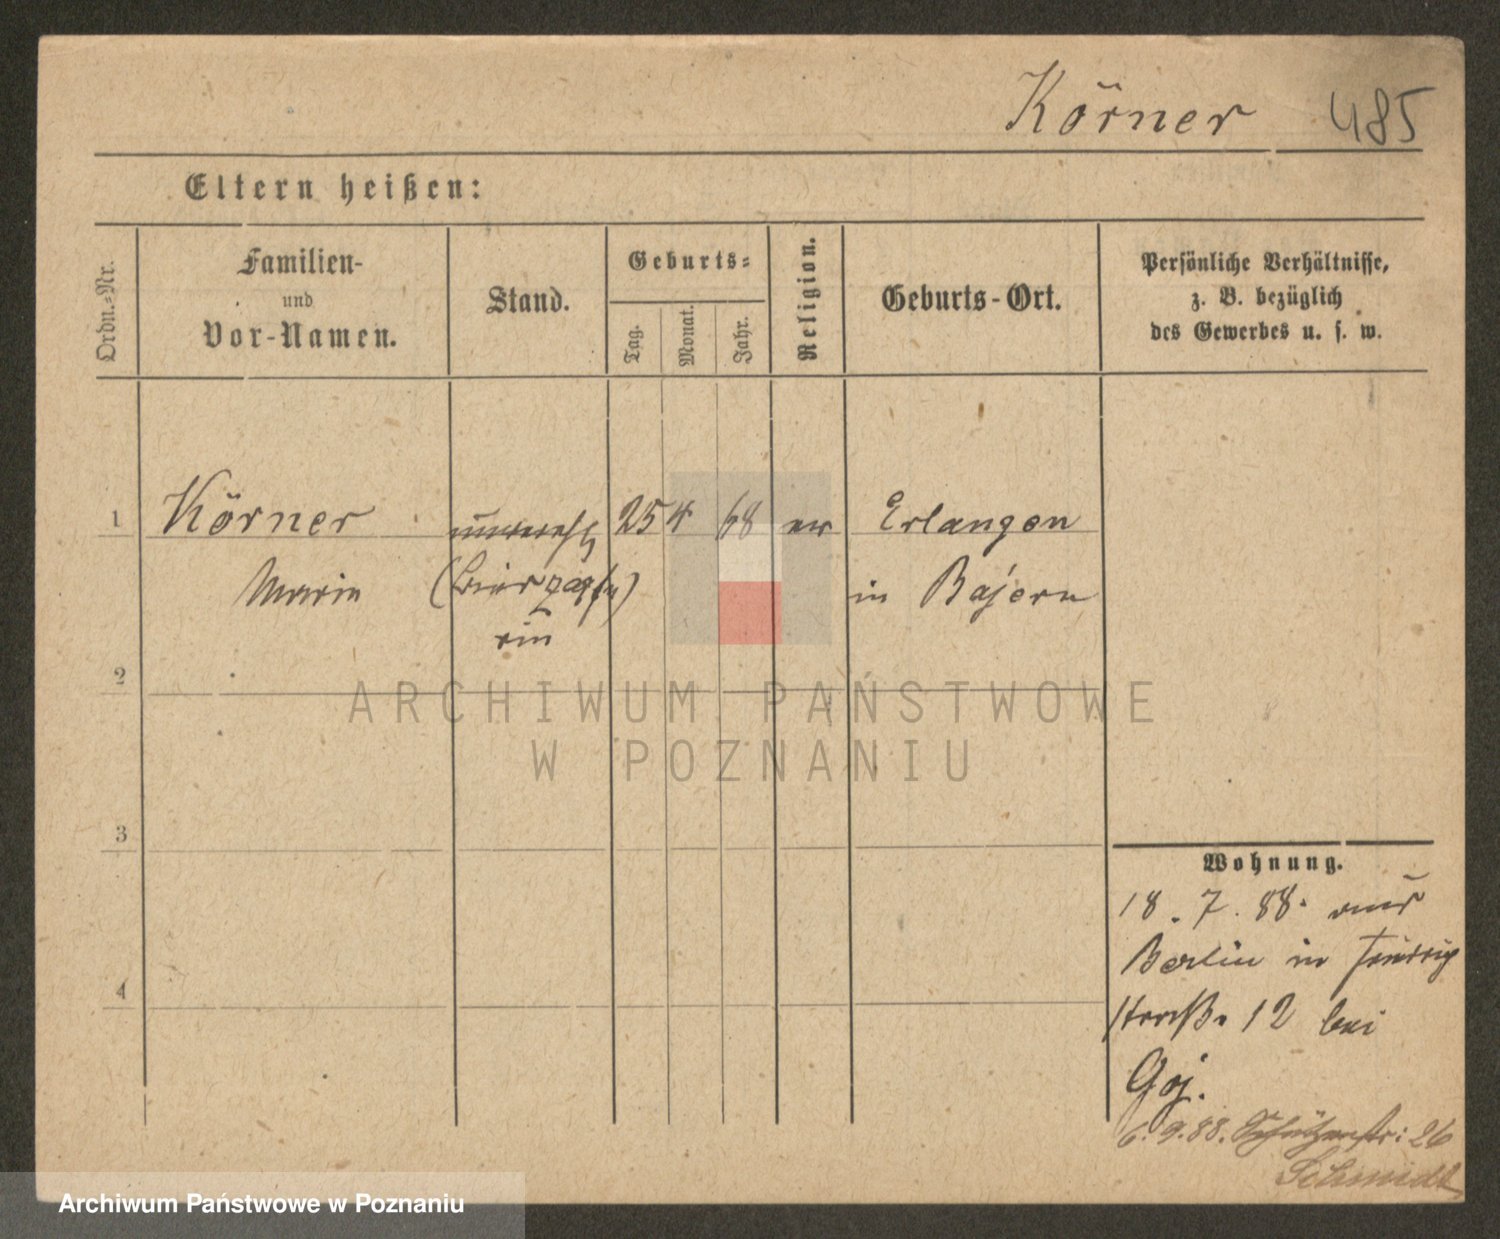 Körner 485
Eltern heißen:
Ordn.-Nr.
Familien-
und
Vor-Namen.
Stand.
Geburts-
Tag.
Monat.
Jahr.
Religion.
Geburts-Ort.
Persönliche Verhältnisse,
z. B. bezüglich
des Gewerbes u. s. w.
1 Körner unverehl 25 4 68 ev Erlangen
Marie (Bierzapfe) in Bajern
rin
2
3
4
Wohnung.
18. 7. 88. aus
Berlin in
straße 12 bei
Goj.
6. 9. 88. Schützenstr: 26
Schmidt
ARCHIWUM PAŃSTWOWE
W POZNANIU
Archiwum Państwowe w Poznaniu